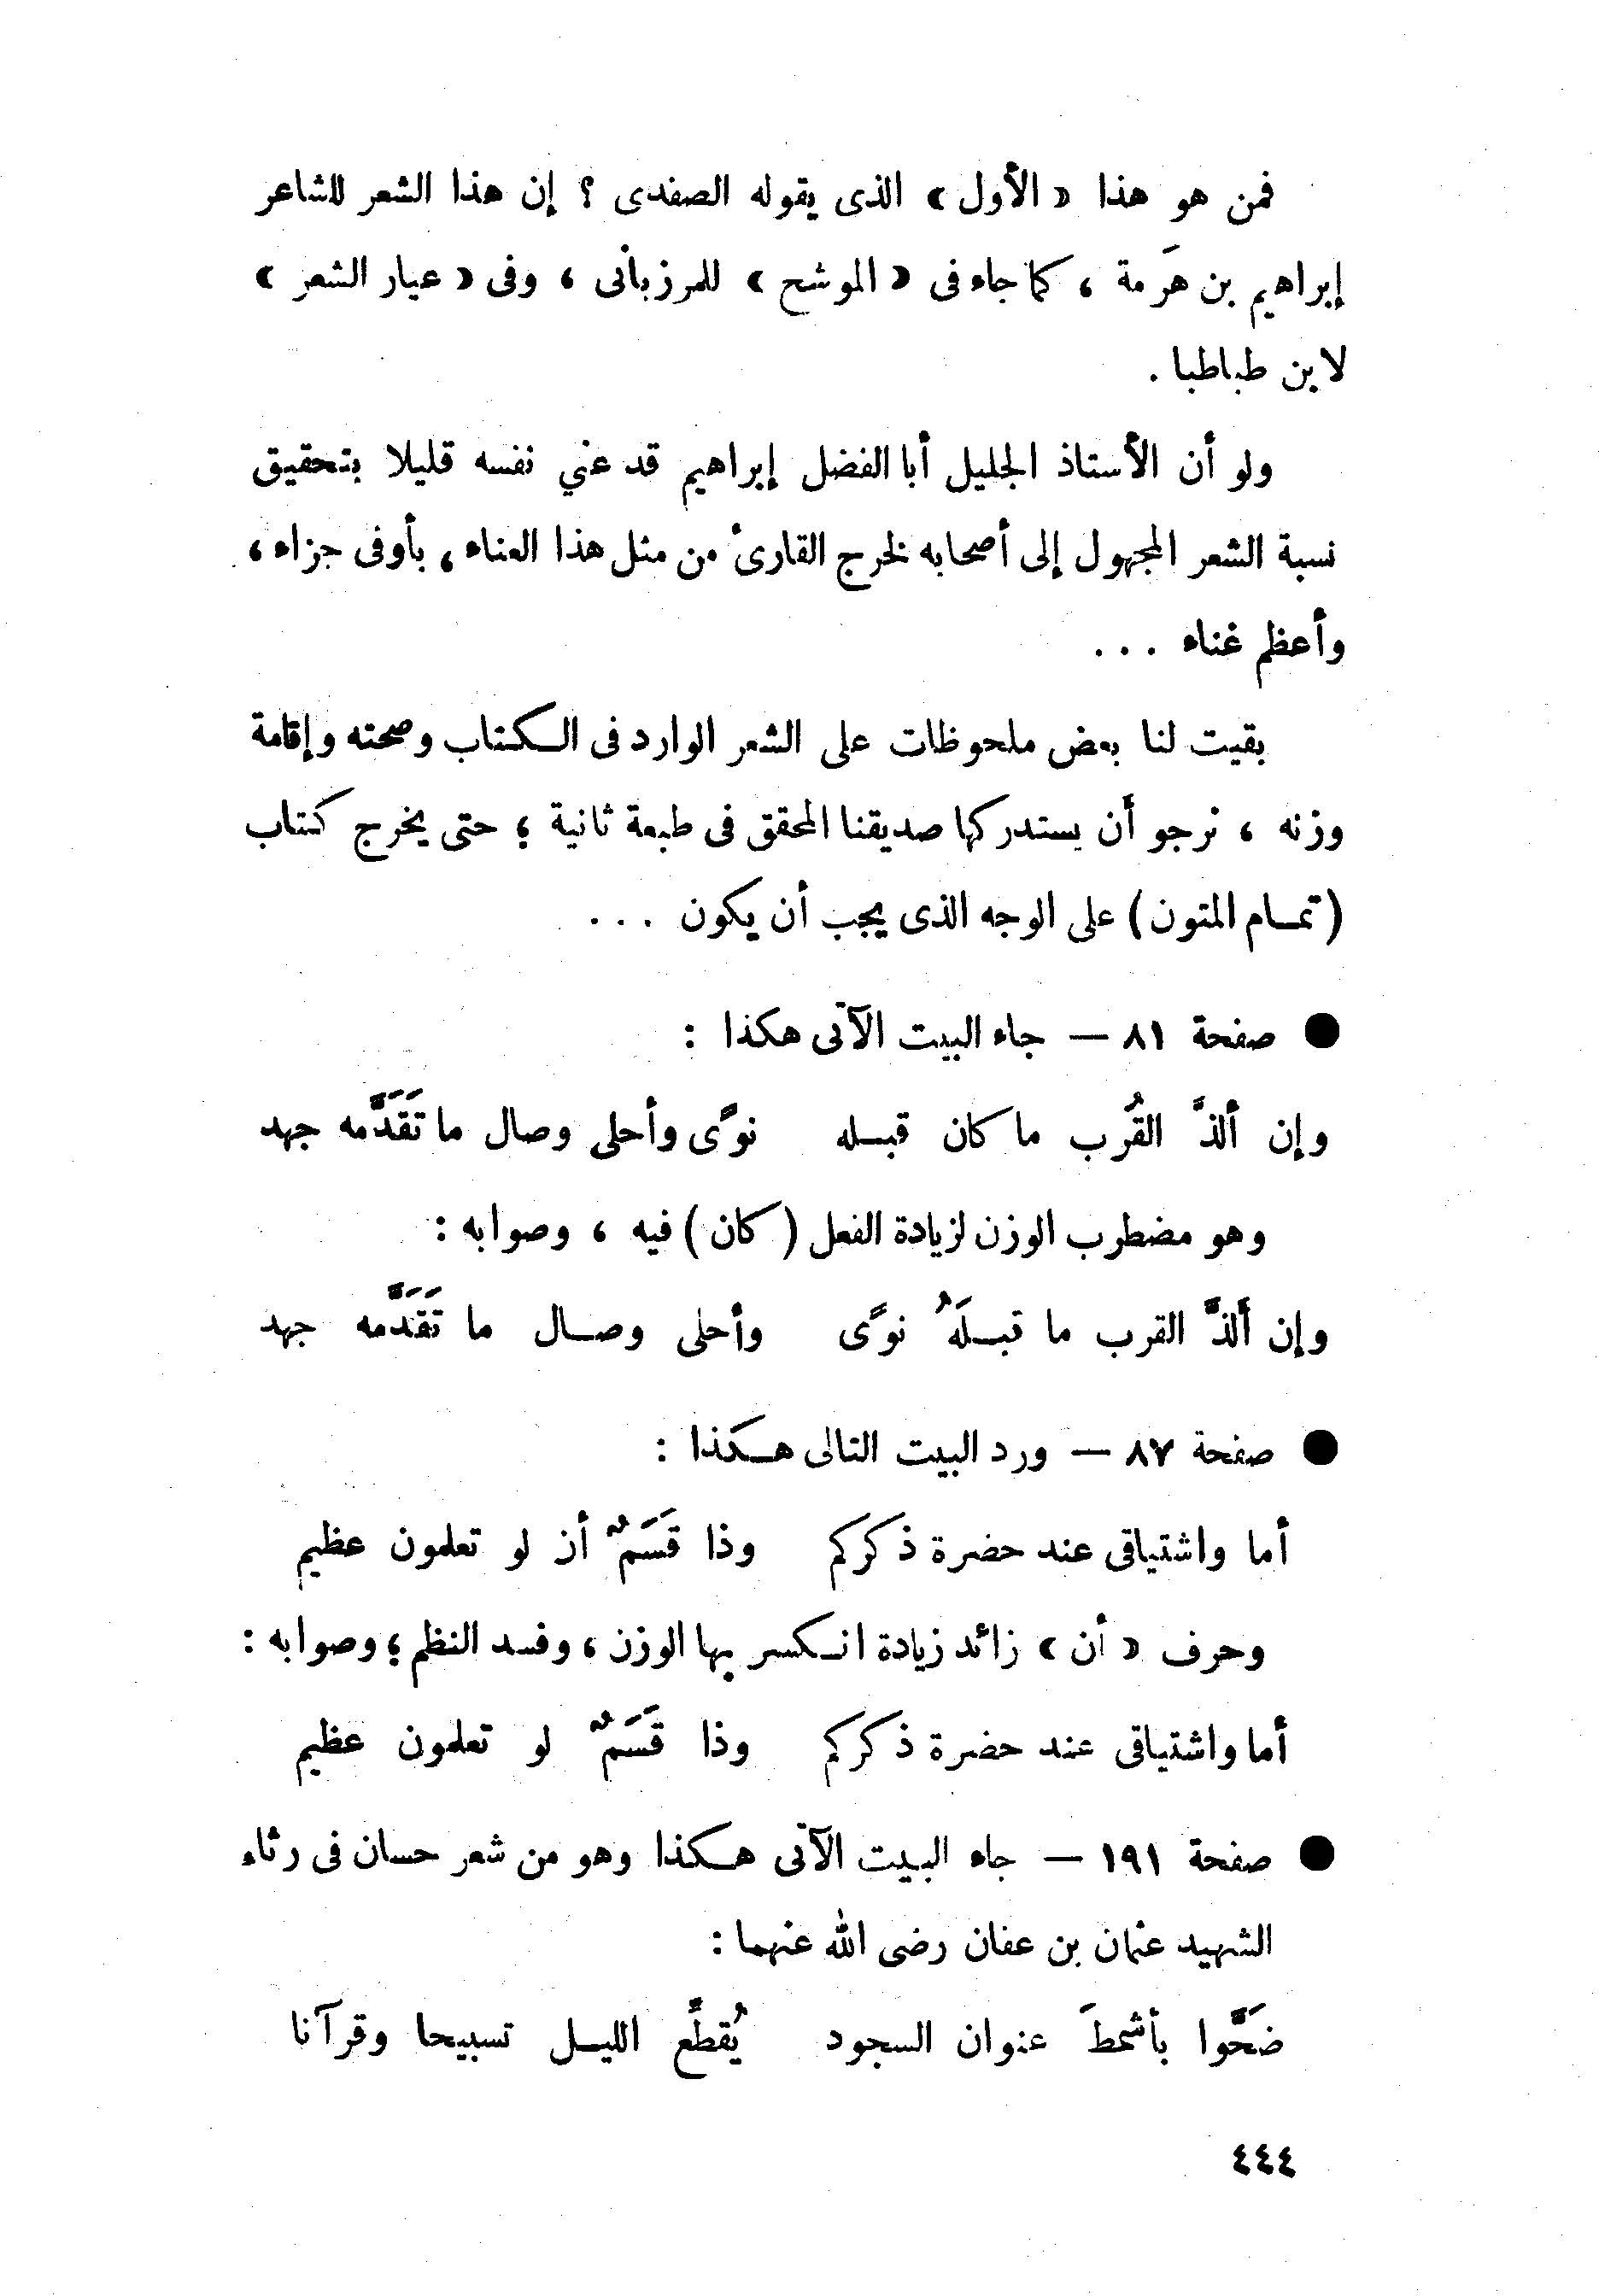 فمن هو هذا « الأول » الذى يقوله الصفدى ؟ إن هذا الشعر للشاعر
إبراهيم بن هَرمة ، كما جاء فى « الموشح » للمرزبانى ، وفى « عيار الشعر »
لابن طباطبا .
ولو أن الأستاذ الجليل أبا الفضل إبراهيم قد عني نفسه قليلا بتحقيق
نسبة الشعر المجهول إلى أصحابه لخرج القارئ من مثل هذا العناء ، بأوفى جزاء ،
وأعظم غناء ...
بقيت لنا بعض ملحوظات على الشعر الوارد فى الكتاب وصحته وإقامة
وزنه ، نرجو أن يستدركها صديقنا المحقق فى طبعة ثانية ؛ حتى يخرج كتاب
(تمام المتون) على الوجه الذى يجب أن يكون ...
● صفحة ٨١ — جاء البيت الآتى هكذا :
وإن ألذَّ القُرب ما كان قبله نوًى وأحلى وصال ما تَقَدَّمه جهد
وهو مضطرب الوزن لزيادة الفعل (كان) فيه ، وصوابه :
وإن ألذَّ القرب ما قبلَهُ نوًى وأحلى وصال ما تَقَدَّمه جهد
● صفحة ٨٧ — ورد البيت التالى هكذا :
أما واشتياقى عند حضرة ذكركم وذا قَسَمٌ أن لو تعلمون عظيم
وحرف « أن » زائد زيادة انكسر بها الوزن ، وفسد النظم ؛ وصوابه :
أما واشتياقى عند حضرة ذكركم وذا قَسَمٌ لو تعلمون عظيم
● صفحة ١٩١ — جاء البيت الآتى هكذا وهو من شعر حسان فى رثاء
الشهيد عثمان بن عفان رضى الله عنهما :
ضَحَّوا بأشمطَ عنوان السجود يُقطِّع الليل تسبيحا وقرآنا
٤٤٤